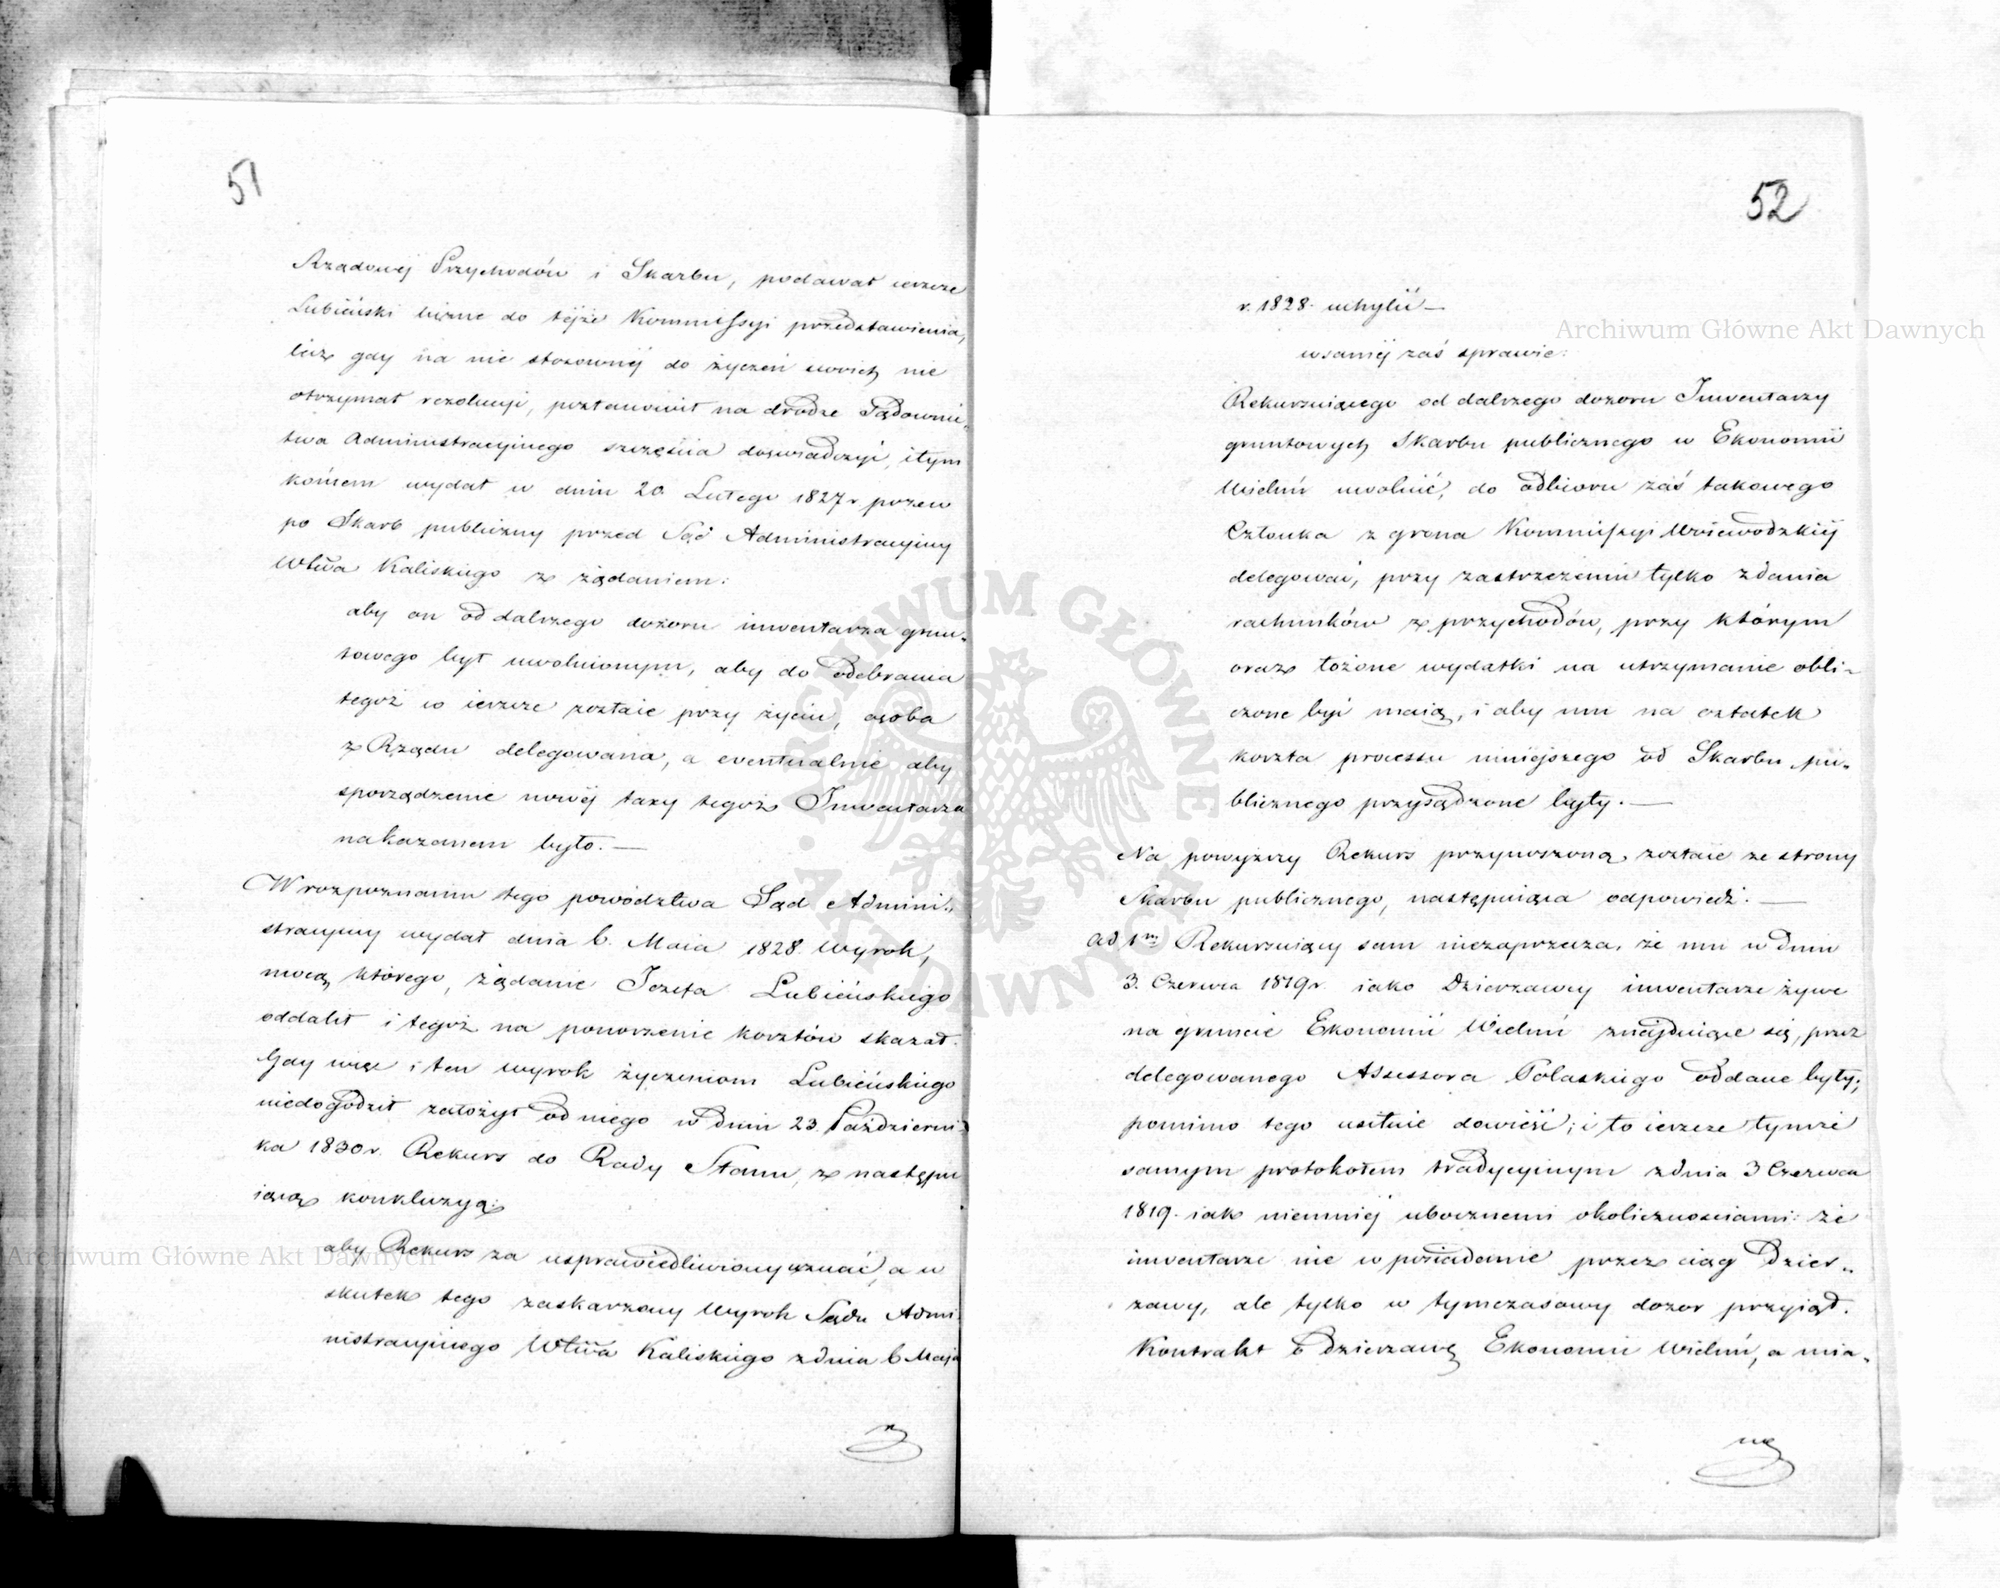 51
Rządowej Przychodów i Skarbu, podawał ieszcze
Lubiński liczne do tejże Kommissyi przedstawienia,
lecz gdy na nie stosownéj do życzeń swoich nie
otrzymał rezolucyi, postanowił na drodze Sądownic„
twa Administracyjnego szczęścia doświadczyć, i tym
końcem wydał w dniu 20. Lutego 1827 r pozew
po Skarb publiczny przed Sąd Administracyjny
Wtwa Kaliskiego z żądaniem:
aby on od dalszego dozoru inwentarza grun„
towego był uwolnionym, aby do odebrania
tegoż co ieszcze zostaie przy życiu, osoba
z Rządu delegowana, a eventualnie aby
sporządzenie nowéj taxy tegoż Inwentarza
nakazanem było. —
W rozpoznaniu tego powództwa Sąd Admini„
stracyjny wydał dnia 6. Maia 1828. Wyrok,
mocą którego, żądanie Józefa Lubińskiego
oddalił i tegoż na ponoszenie kosztów skazał.
Gdy więc i ten wyrok życzeniom Lubińskiego
niedogodził założył od niego w dniu 23. Październi„
ka 1830 r. Rekurs do Rady Stanu, z następu
iącą konkluzyą:
aby Rekurs za usprawiedliwiony uznać, a w
skutek tego zaskarżony Wyrok Sądu Admi
nistracyjnego Wtwa Kaliskiego z dnia 6 Maja
52
r. 1828. uchylić —
w saméj zaś sprawie:
Rekurruiącego od dalszego dozoru Inwentarzy
gruntowych Skarbu publicznego w Ekonomii
Wieluń uwolnić, do odbioru zaś takowego
Członka z grona Kommissyi Woiewodzkiéj
delegować, przy zastrzeżeniu tylko zdania
rachunków z przychodów, przy którym
oraz łożone wydatki na utrzymanie obli„
czone być maią, i aby mu na ostatek
koszta processu niniejszego od Skarbu pu„
blicznego przysądzone były. —
Na powyższy Rekurs przynoszoną zostaie ze strony
Skarbu publicznego, następuiąca odpowiedź. —
ad 1m Rekurruiący sam niezaprzecza, że mu w dniu
3. Czerwca 1819 r. iako Dzierżawcy inwentarze żywe
na gruncie Ekonomii Wieluń znajduiące się, przez
delegowanego Assessora Polaskiego oddane były;
pomimo tego usiłuie dowieść; i to ieszcze tymże
samym protokołem tradycyinym z dnia 3 Czerwca
1819. iak niemniéj ubocznemi okolicznościami: że
inwentarze nie w posiadanie przez ciąg Dzier„
żawy, ale tylko w tymczasowy dozor przyjął.
Kontrakt o Dzierżawę Ekonomii Wieluń, a mia„
Archiwum Główne Akt Dawnych
Archiwum Główne Akt Dawnych
ARCHIWUM GŁÓWNE AKT DAWNYCH